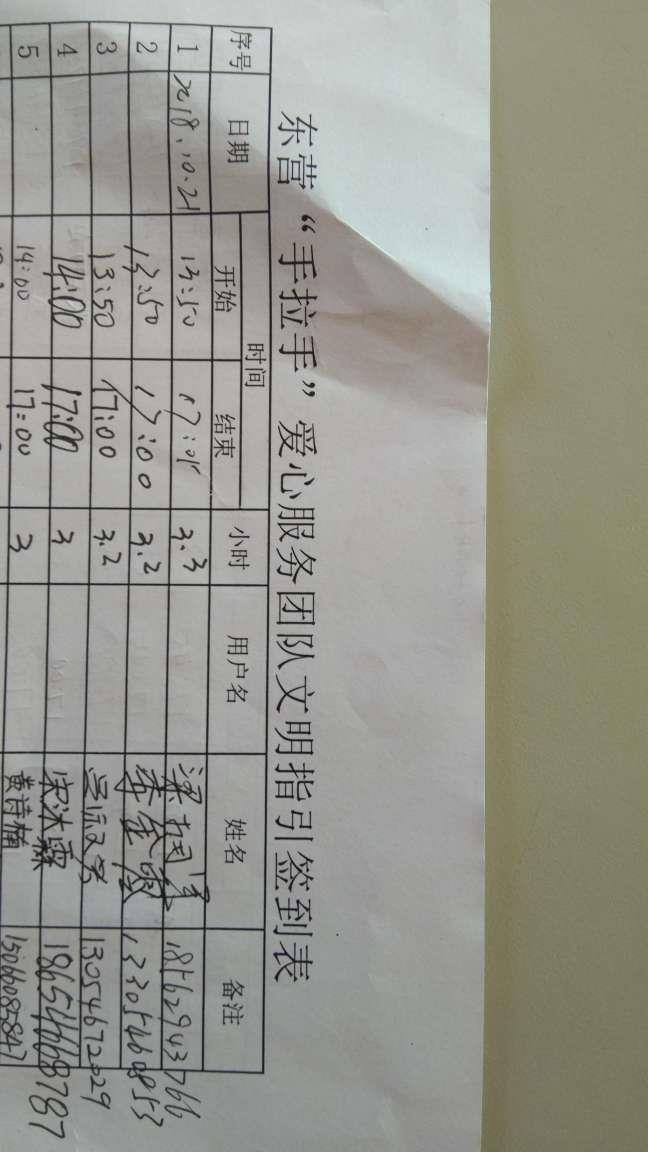 东营“手拉手”爱心服务团队文明指引签到表
序号 日期 时间 小时 用户名 姓名 备注
开始 结束
1 2018.10.21 13:50 17:05 3.3 18562943766
2 13:50 17:00 3.2 13305460853
3 13:50 17:00 3.2 13054672029
4 14:00 17:00 3 宋沐霖 18654668787
5 14:00 17:00 3 黄诗楠 15066085847